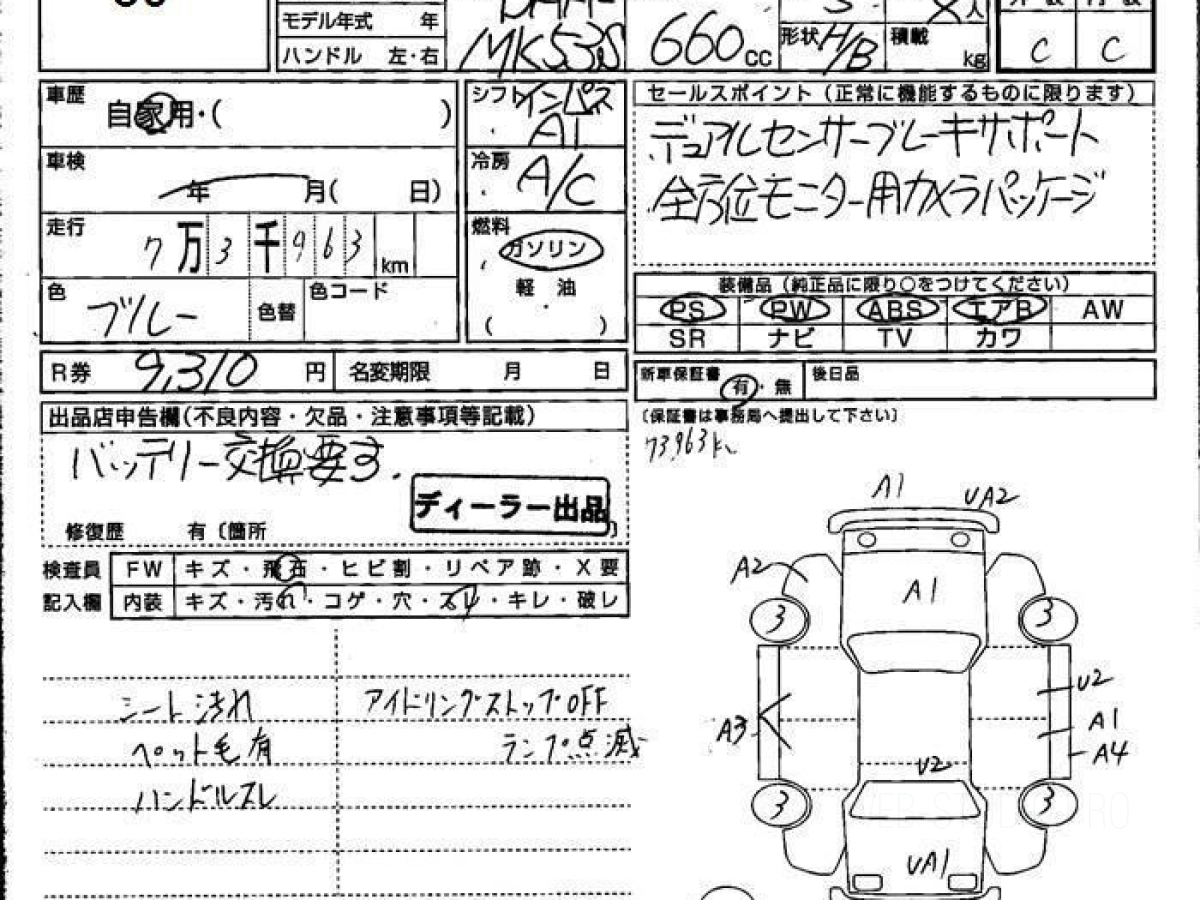 モデル年式 年
ハンドル 左・右
MK53S
660cc
形状 H/B
積載 kg
C C
車歴 自家用・( )
シフト インパネ AT
セールスポイント(正常に機能するものに限ります)
デュアルセンサーブレーキサポート
全方位モニター用カメラパッケージ
車検 年 月( 日)
冷房 A/C
走行 7万3千963km
燃料 ガソリン
軽油
( )
色 ブルー
色替
色コード
装備品(純正品に限り○をつけてください)
PS PW ABS エアB AW
SR ナビ TV カワ
R券 9,310円
名変期限 月 日
新車保証書 有・無
後日品
(保証書は事務局へ提出して下さい)
73,963km
出品店申告欄(不良内容・欠品・注意事項等記載)
バッテリー交換要す.
ディーラー出品
修復歴 有〔箇所 〕
検査員記入欄
FW キズ・飛石・ヒビ割・リペア跡・X要
内装 キズ・汚れ・コゲ・穴・スレ・キレ・破レ
シート汚れ
ペット毛有
ハンドルスレ
アイドリングストップOFF
ランプ点滅
A1 UA2
A2 A1
3 3
U2
A3 A1
A4
U2
3 3
UA1